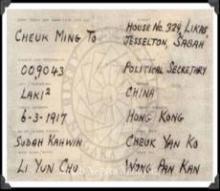 CHEUK MING TO
HOUSE NO. 329, LIKAS,
JESSELTON, SABAH
009043
POLITICAL SECRETARY
LAKI²
CHINA
6-3-1917
HONG KONG
SUDAH KAHWIN
CHEUK YAN KO
LI YUN CHU
WONG PAN KAN